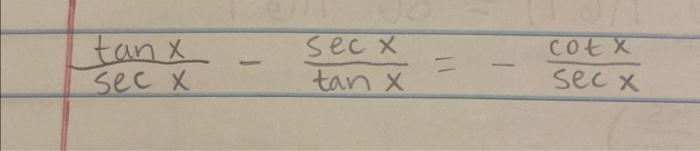 tan x / sec x - sec x / tan x = - cot x / sec x